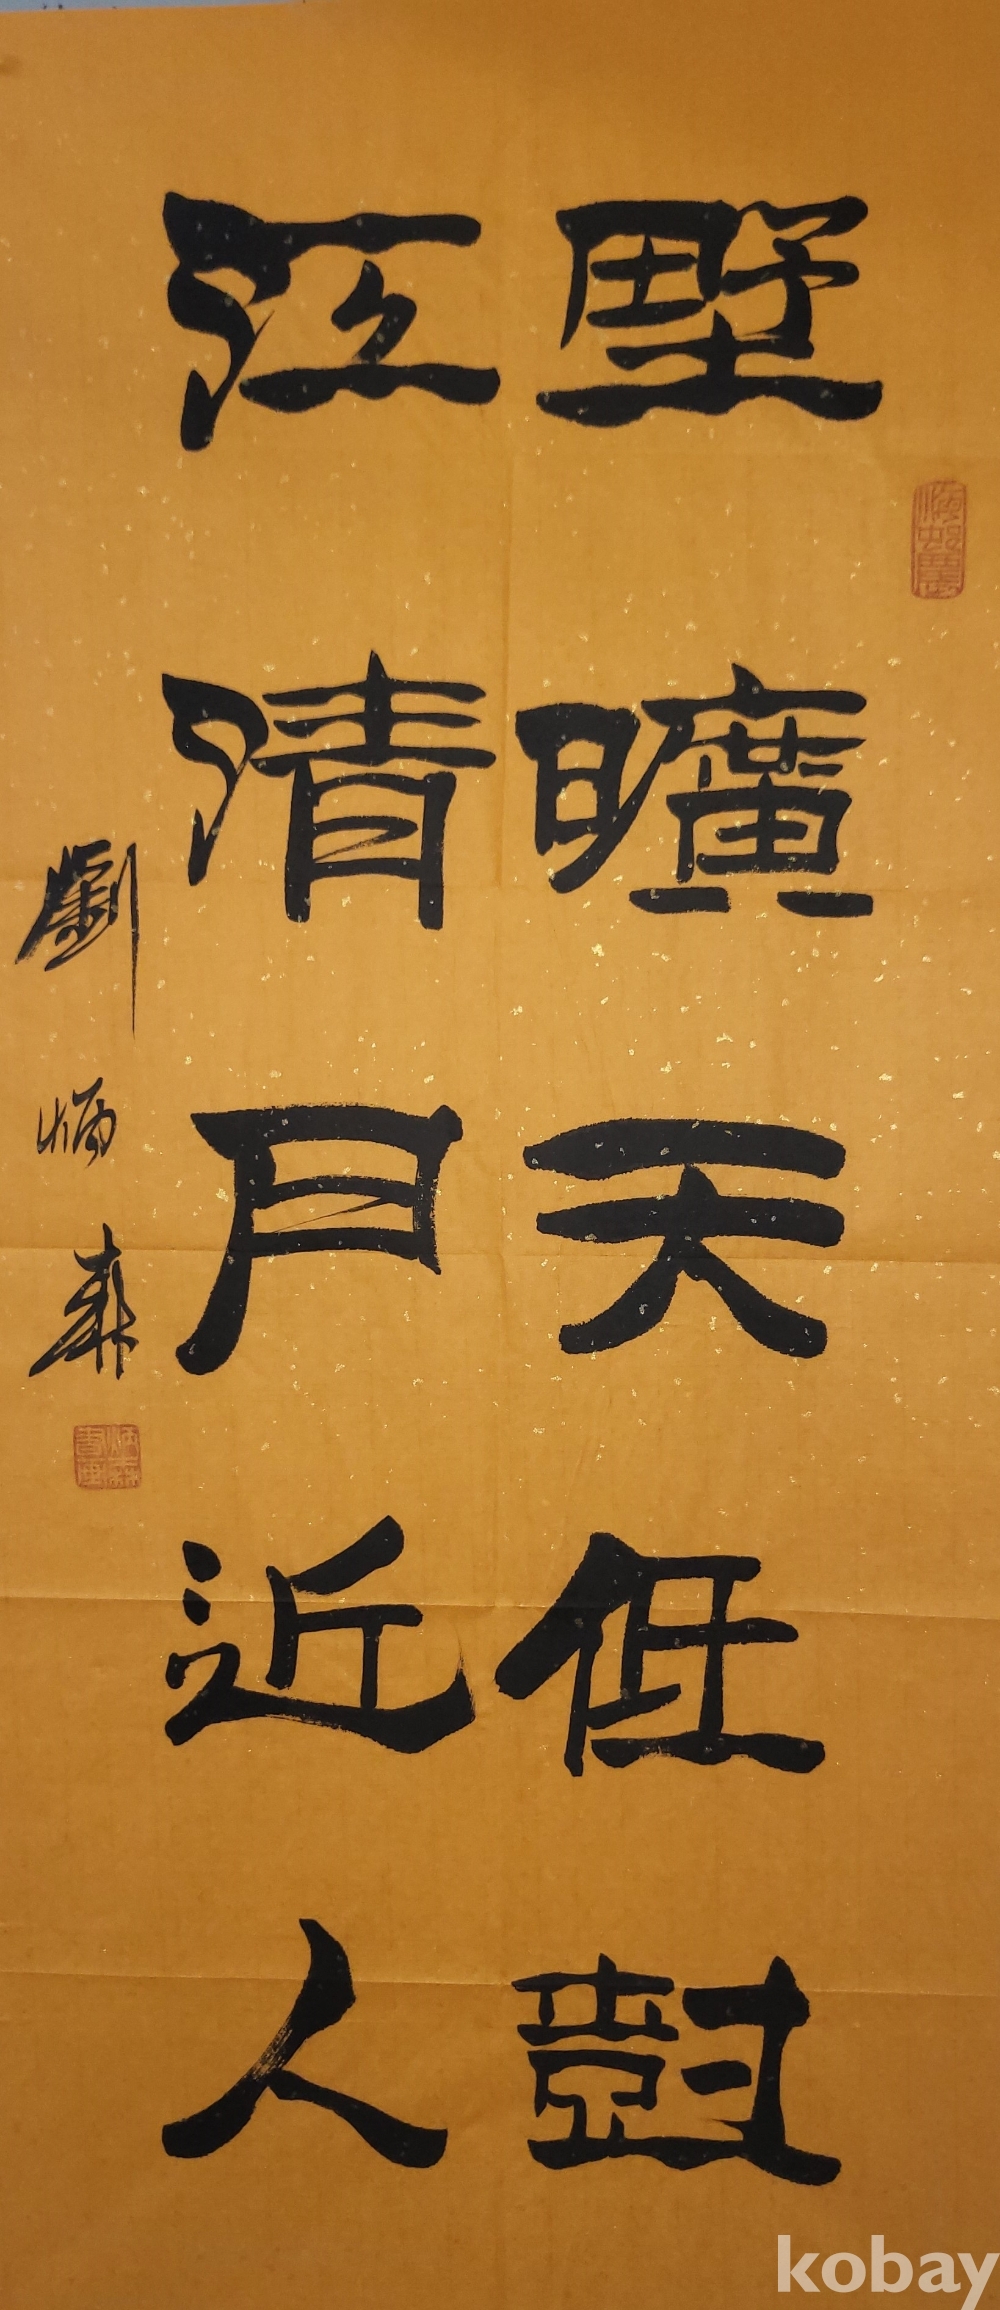 野曠天低樹
江清月近人
劉炳森
炳森書画
kobay